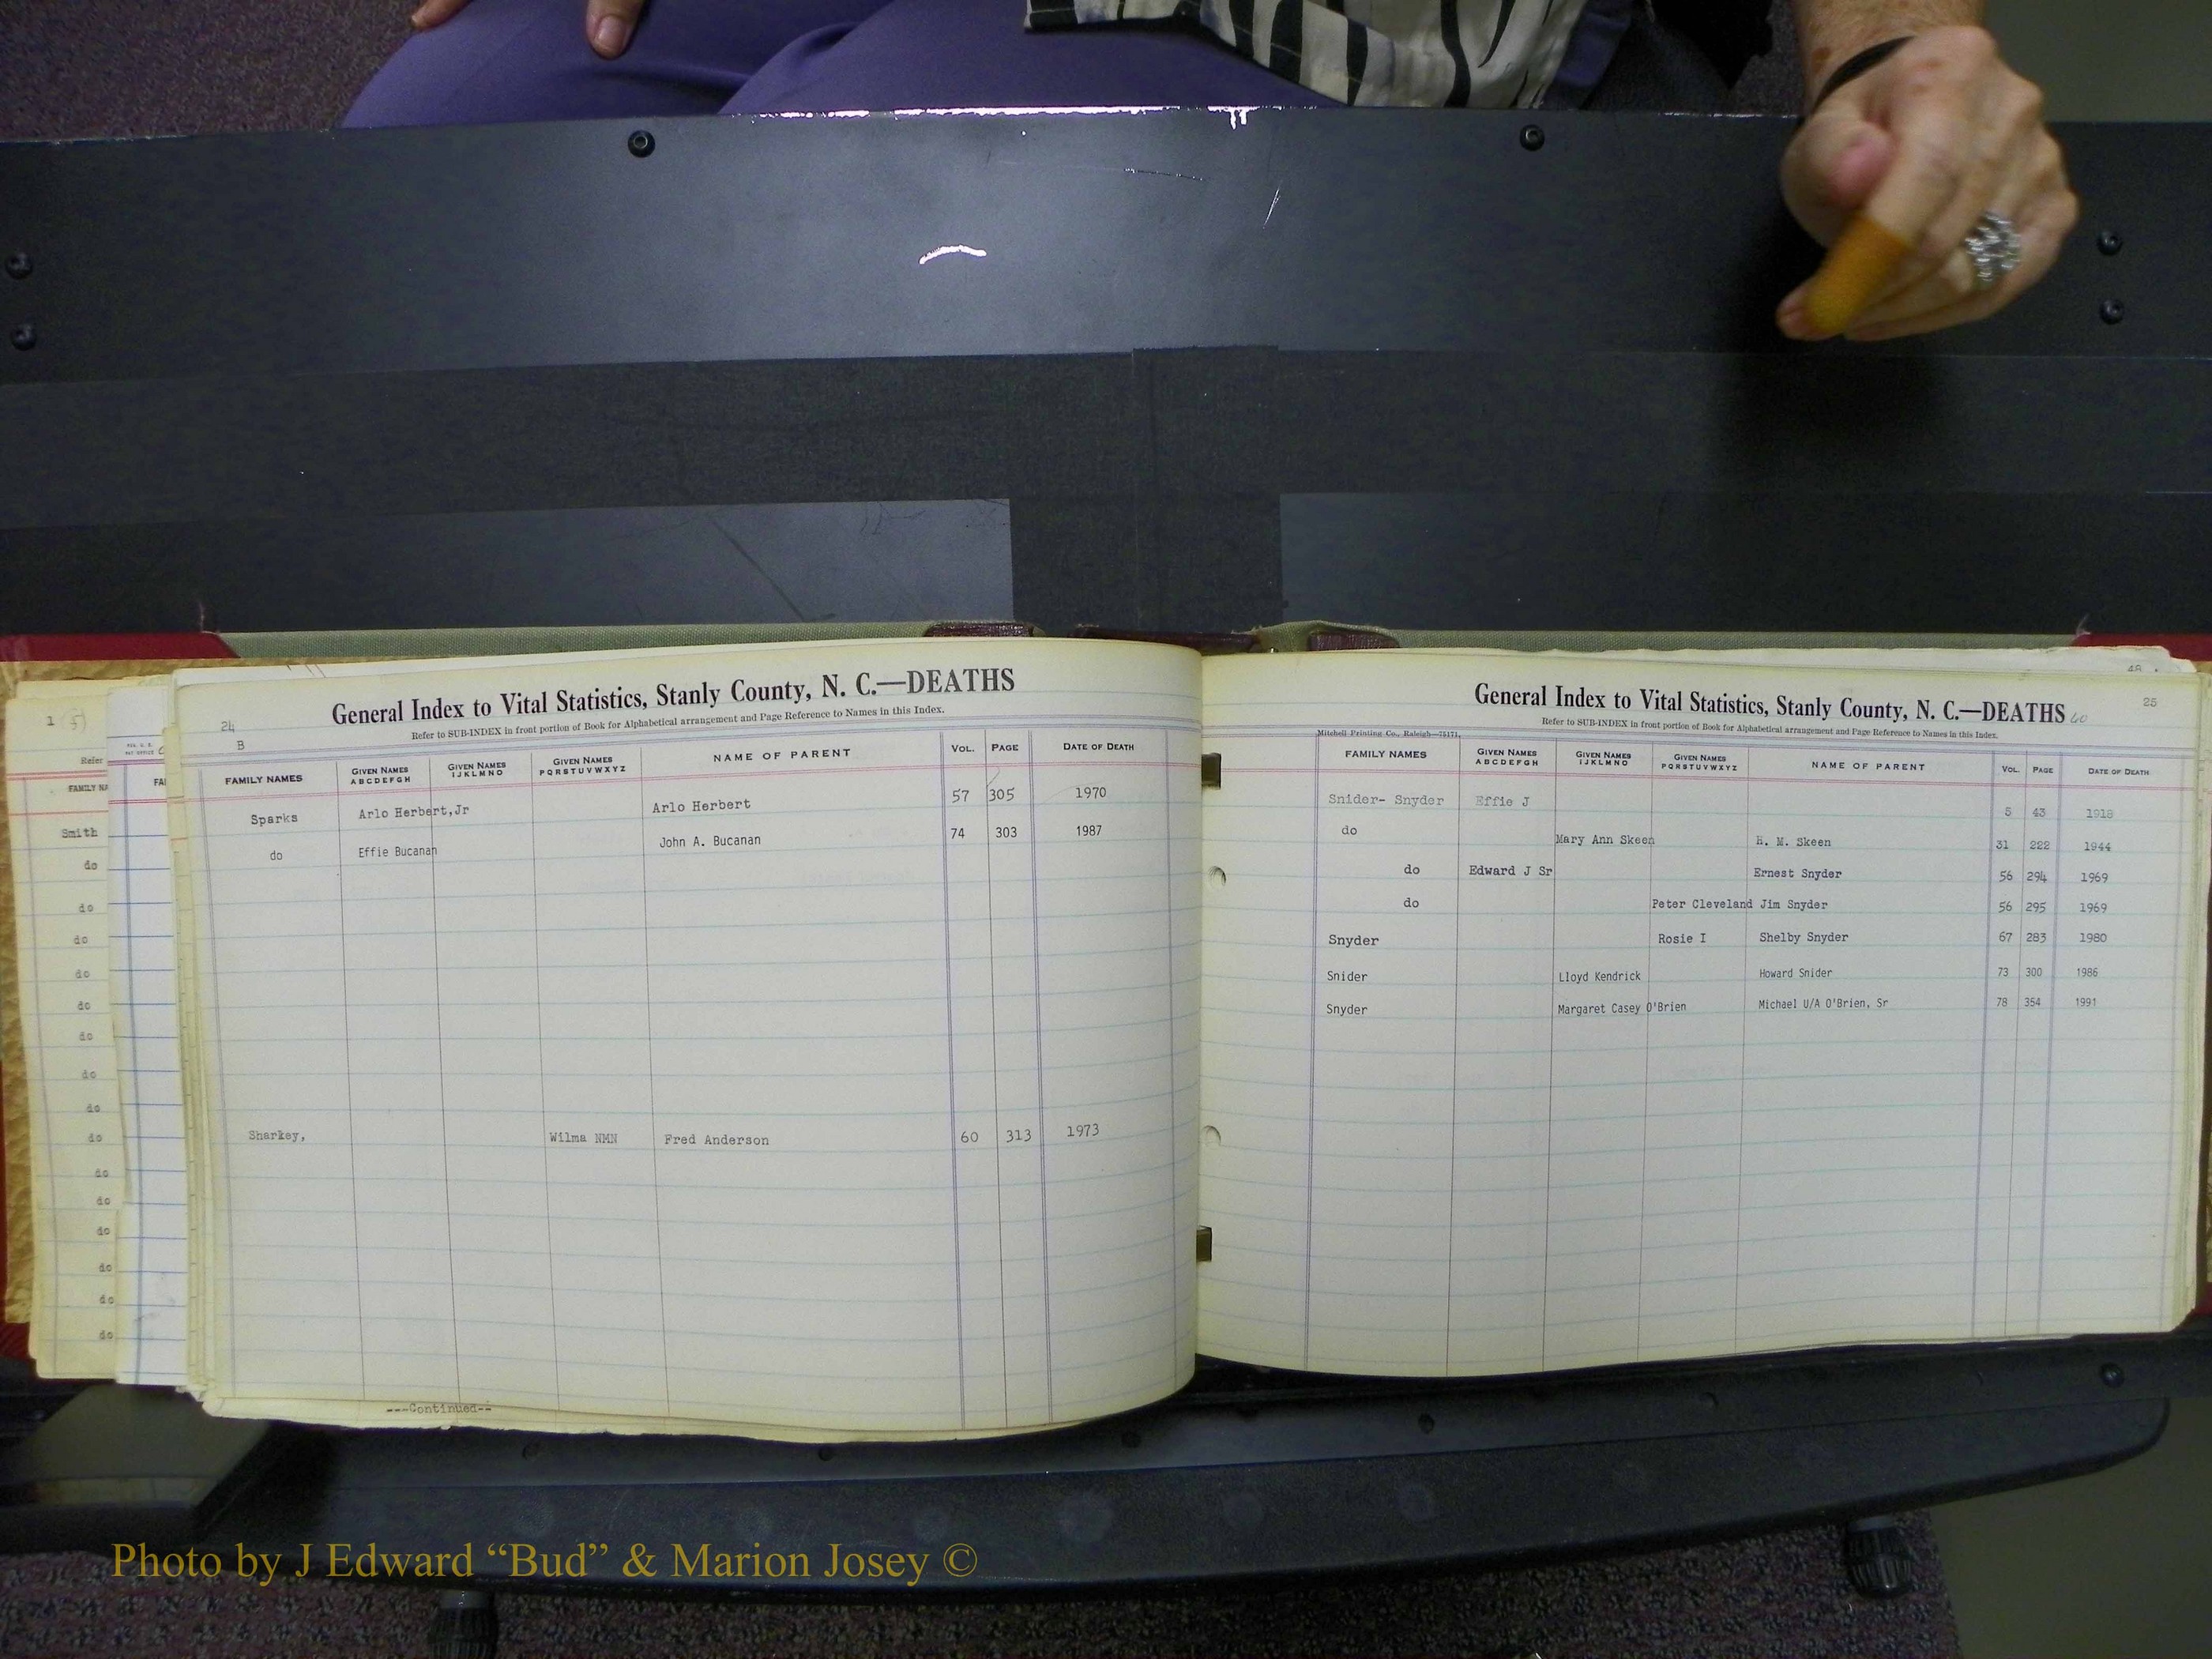 1 (5)
Refer
FAMILY NA
Smith
do
do
do
do
do
do
do
do
do
do
do
do
do
do
do
FAI
24
B
General Index to Vital Statistics, Stanly County, N. C.—DEATHS
Refer to SUB-INDEX in front portion of Book for Alphabetical arrangement and Page Reference to Names in this Index.
FAMILY NAMES GIVEN NAMES ABCDEFGH GIVEN NAMES IJKLMNO GIVEN NAMES PQRSTUVWXYZ NAME OF PARENT VOL. PAGE DATE OF DEATH
Sparks Arlo Herbert,Jr Arlo Herbert 57 305 1970
do Effie Bucanan John A. Bucanan 74 303 1987
Sharkey, Wilma NMN Fred Anderson 60 313 1973
---Continued--
48
25
General Index to Vital Statistics, Stanly County, N. C.—DEATHS 60
Refer to SUB-INDEX in front portion of Book for Alphabetical arrangement and Page Reference to Names in this Index.
Mitchell Printing Co., Raleigh—75171,
FAMILY NAMES GIVEN NAMES ABCDEFGH GIVEN NAMES IJKLMNO GIVEN NAMES PQRSTUVWXYZ NAME OF PARENT VOL. PAGE DATE OF DEATH
Snider- Snyder Effie J 5 43 1918
do Mary Ann Skeen H. M. Skeen 31 222 1944
do Edward J Sr Ernest Snyder 56 294 1969
do Peter Cleveland Jim Snyder 56 295 1969
Snyder Rosie I Shelby Snyder 67 283 1980
Snider Lloyd Kendrick Howard Snider 73 300 1986
Snyder Margaret Casey O'Brien Michael U/A O'Brien, Sr 78 354 1991
Photo by J Edward “Bud” & Marion Josey ©